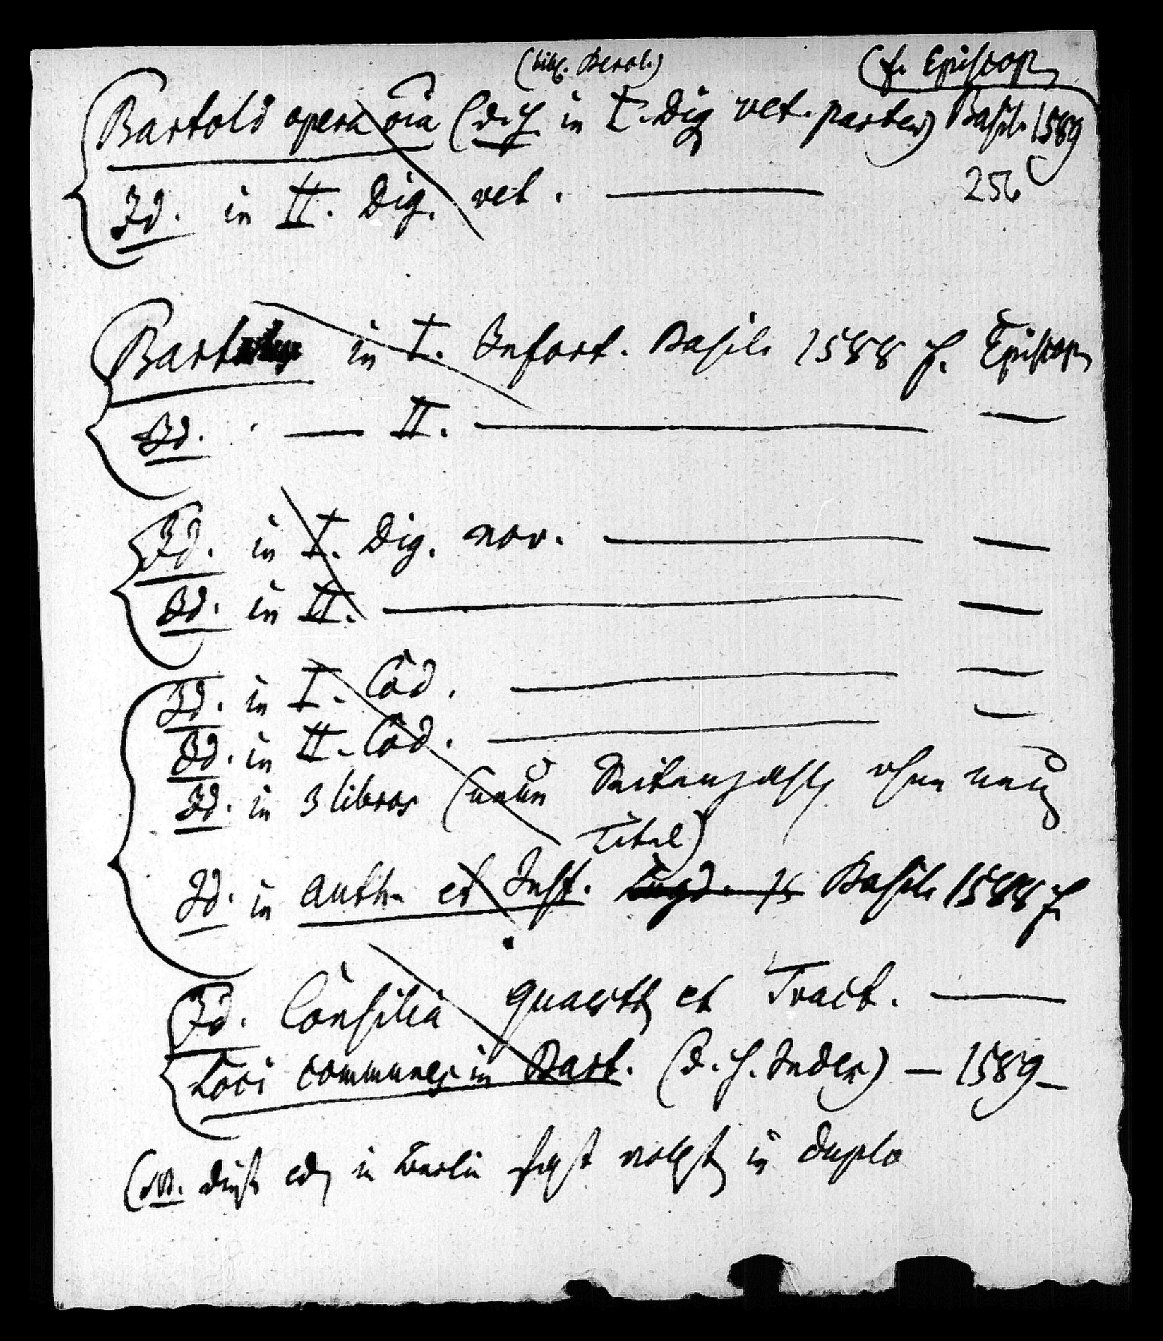 (bibl. Berol.) (f. Episcop.
Bartoli opera oĩa (d. h. in I. Dig vet. partem) Basil. 1589
Id. in II. Dig. vet. — 256
Bartolus in I. Infort. Basil. 1588 f. Episcop.
Id. — II. — —
Id. in I. Dig. nov. — —
Id. in II. — —
Id. in I. Cod. — —
Id. in II. Cod. — —
Id. in 3 libros (neue Seitenzahl, ohne neuen
Titel)
Id. in Auth. et Inst. Lugd. 15 Basil. 1588 f.
Id. Consilia quaestt et Tract. —
Loci communes in Bart. (d. h. Index) — 1589 —
(NB. diese ed. in Berlin in duplo